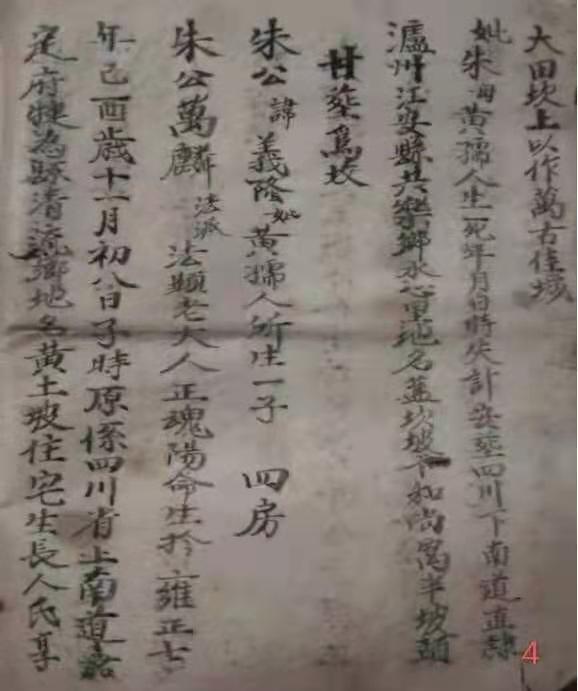 大田坎上以作萬古佳城
妣朱海黃孺人生死年月日時失計安塟四川下南道直隸
瀘州江安縣共樂鄉水心里地名蓋坊坡下和尚嵩半坡頭
甘塟爲坟
朱公諱義隆妣黃孺人所生一子 四房
朱公萬麟法派法顯老大人正魂陽命生扵雍正七
年己酉歳十一月初八日子時原係四川省上南道嘉
定府犍為縣清流鄉地名黃土坡住宅生長人氏享
4